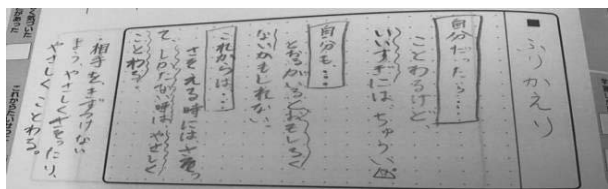 ■ ふりかえり
自分だったら…
ことわるけど、
いいすぎには、ちゅうい
自分も、…
おもしろく
ないかもしれない。
これからは…
さそえる時にはさそっ
て、しかたない時はやさしく
ことわる。
・相手をきずつけない
よう、やさしくさそったり、
やさしくことわる。
く気づいた
があった